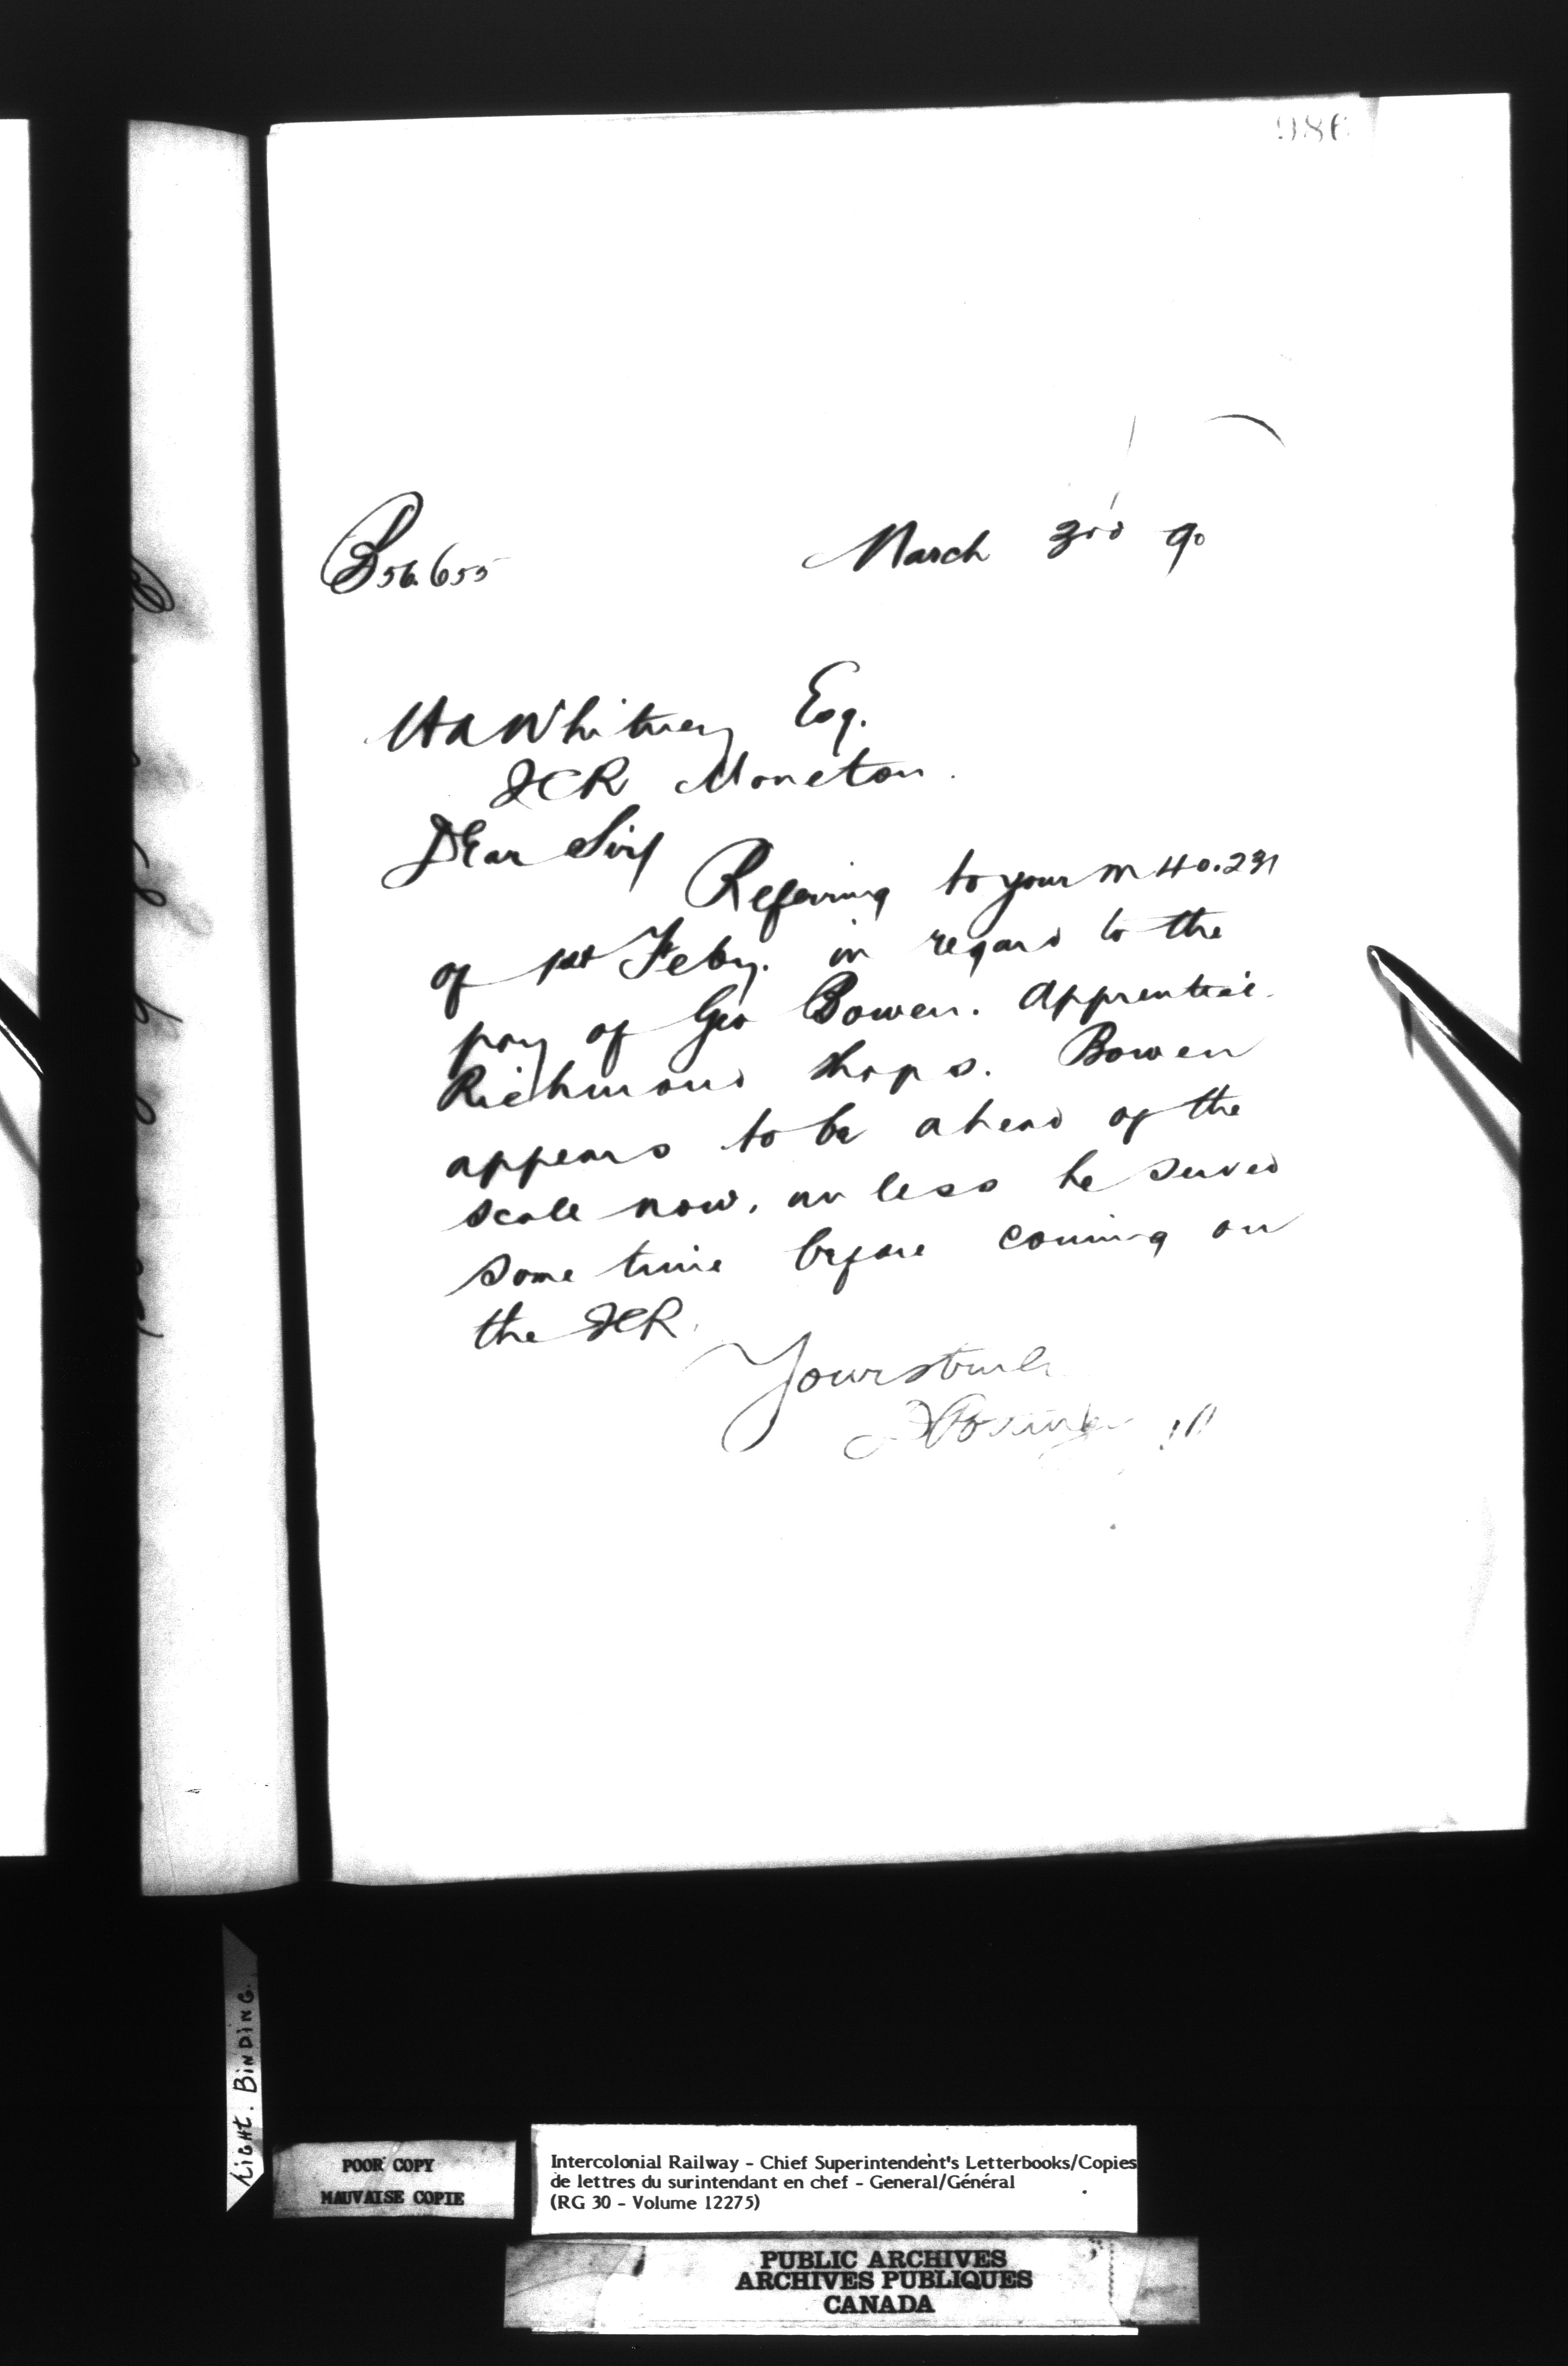 986
B56.655 March 3rd 90
HA Whitney Esq.
ICR Moncton.
Dear Sir/
Referring to your M 40.231
of 1st Feby. in regard to the
pay of Geo Bowen. Apprentice
Richmond Shops. Bowen
appears to be ahead of the
scale now, unless he served
some time before coming on
the ICR.
Yours truly
LIGHT. BINDING.
POOR COPY
MAUVAISE COPIE
Intercolonial Railway - Chief Superintendent's Letterbooks/Copies
de lettres du surintendant en chef - General/Général
(RG 30 - Volume 12275)
PUBLIC ARCHIVES
ARCHIVES PUBLIQUES
CANADA